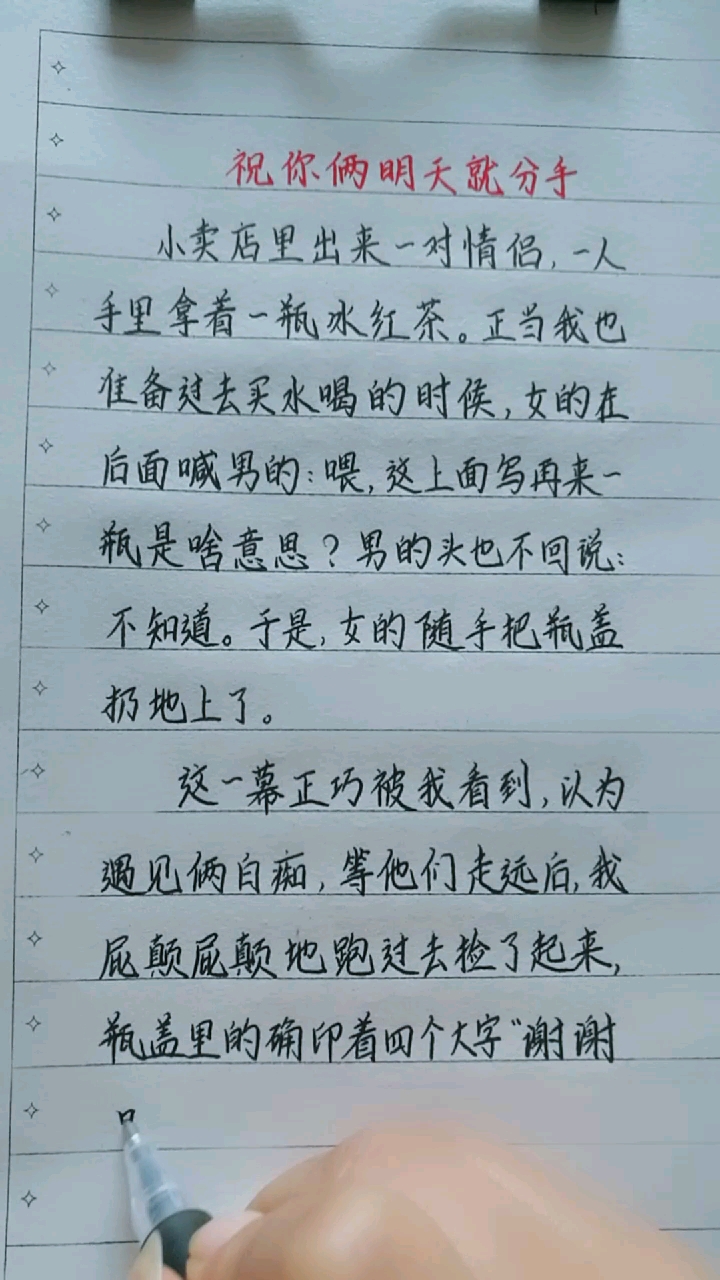 祝你俩明天就分手
小卖店里出来一对情侣,一人
手里拿着一瓶冰红茶。正当我也
准备过去买水喝的时候,女的在
后面喊男的:喂,这上面写再来一
瓶是啥意思?男的头也不回说:
不知道。于是,女的随手把瓶盖
扔地上了。
这一幕正巧被我看到,认为
遇见俩白痴,等他们走远后,我
屁颠屁颠地跑过去捡了起来,
瓶盖里的确印着四个大字“谢谢